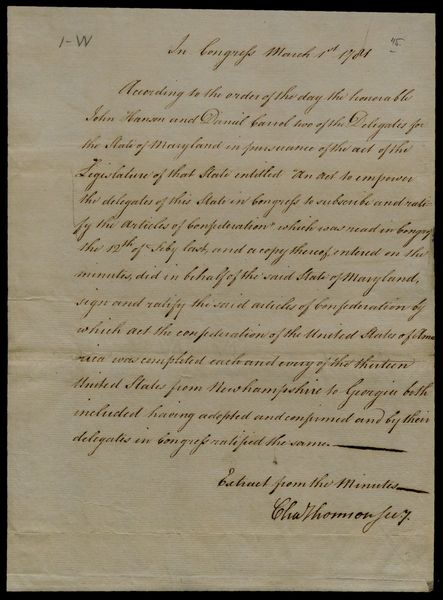 1-W
45
In Congress March 1st 1781
According to the order of the day the honorable
John Hanson and Daniel Carrol two of the Delegates for
the State of Maryland in pursuance of the act of the
Legislature of that State entitled "An act to empower
the delegates of this State in Congress to subscribe and rati-
fy the articles of Confederation" which was read in Congress
the 12th of Feby last, and a copy thereof entered on the
minutes, did in behalf of the said State of Maryland,
sign and ratify the said articles of Confederation by
which act the confederation of the United States of Ame
rica was completed each and every of the thirteen
United States from Newhampshire to Georgia both
included having adopted and confirmed and by their
delegates in Congress ratified the same.
Extract from the Minutes
Cha Thomson Secy.